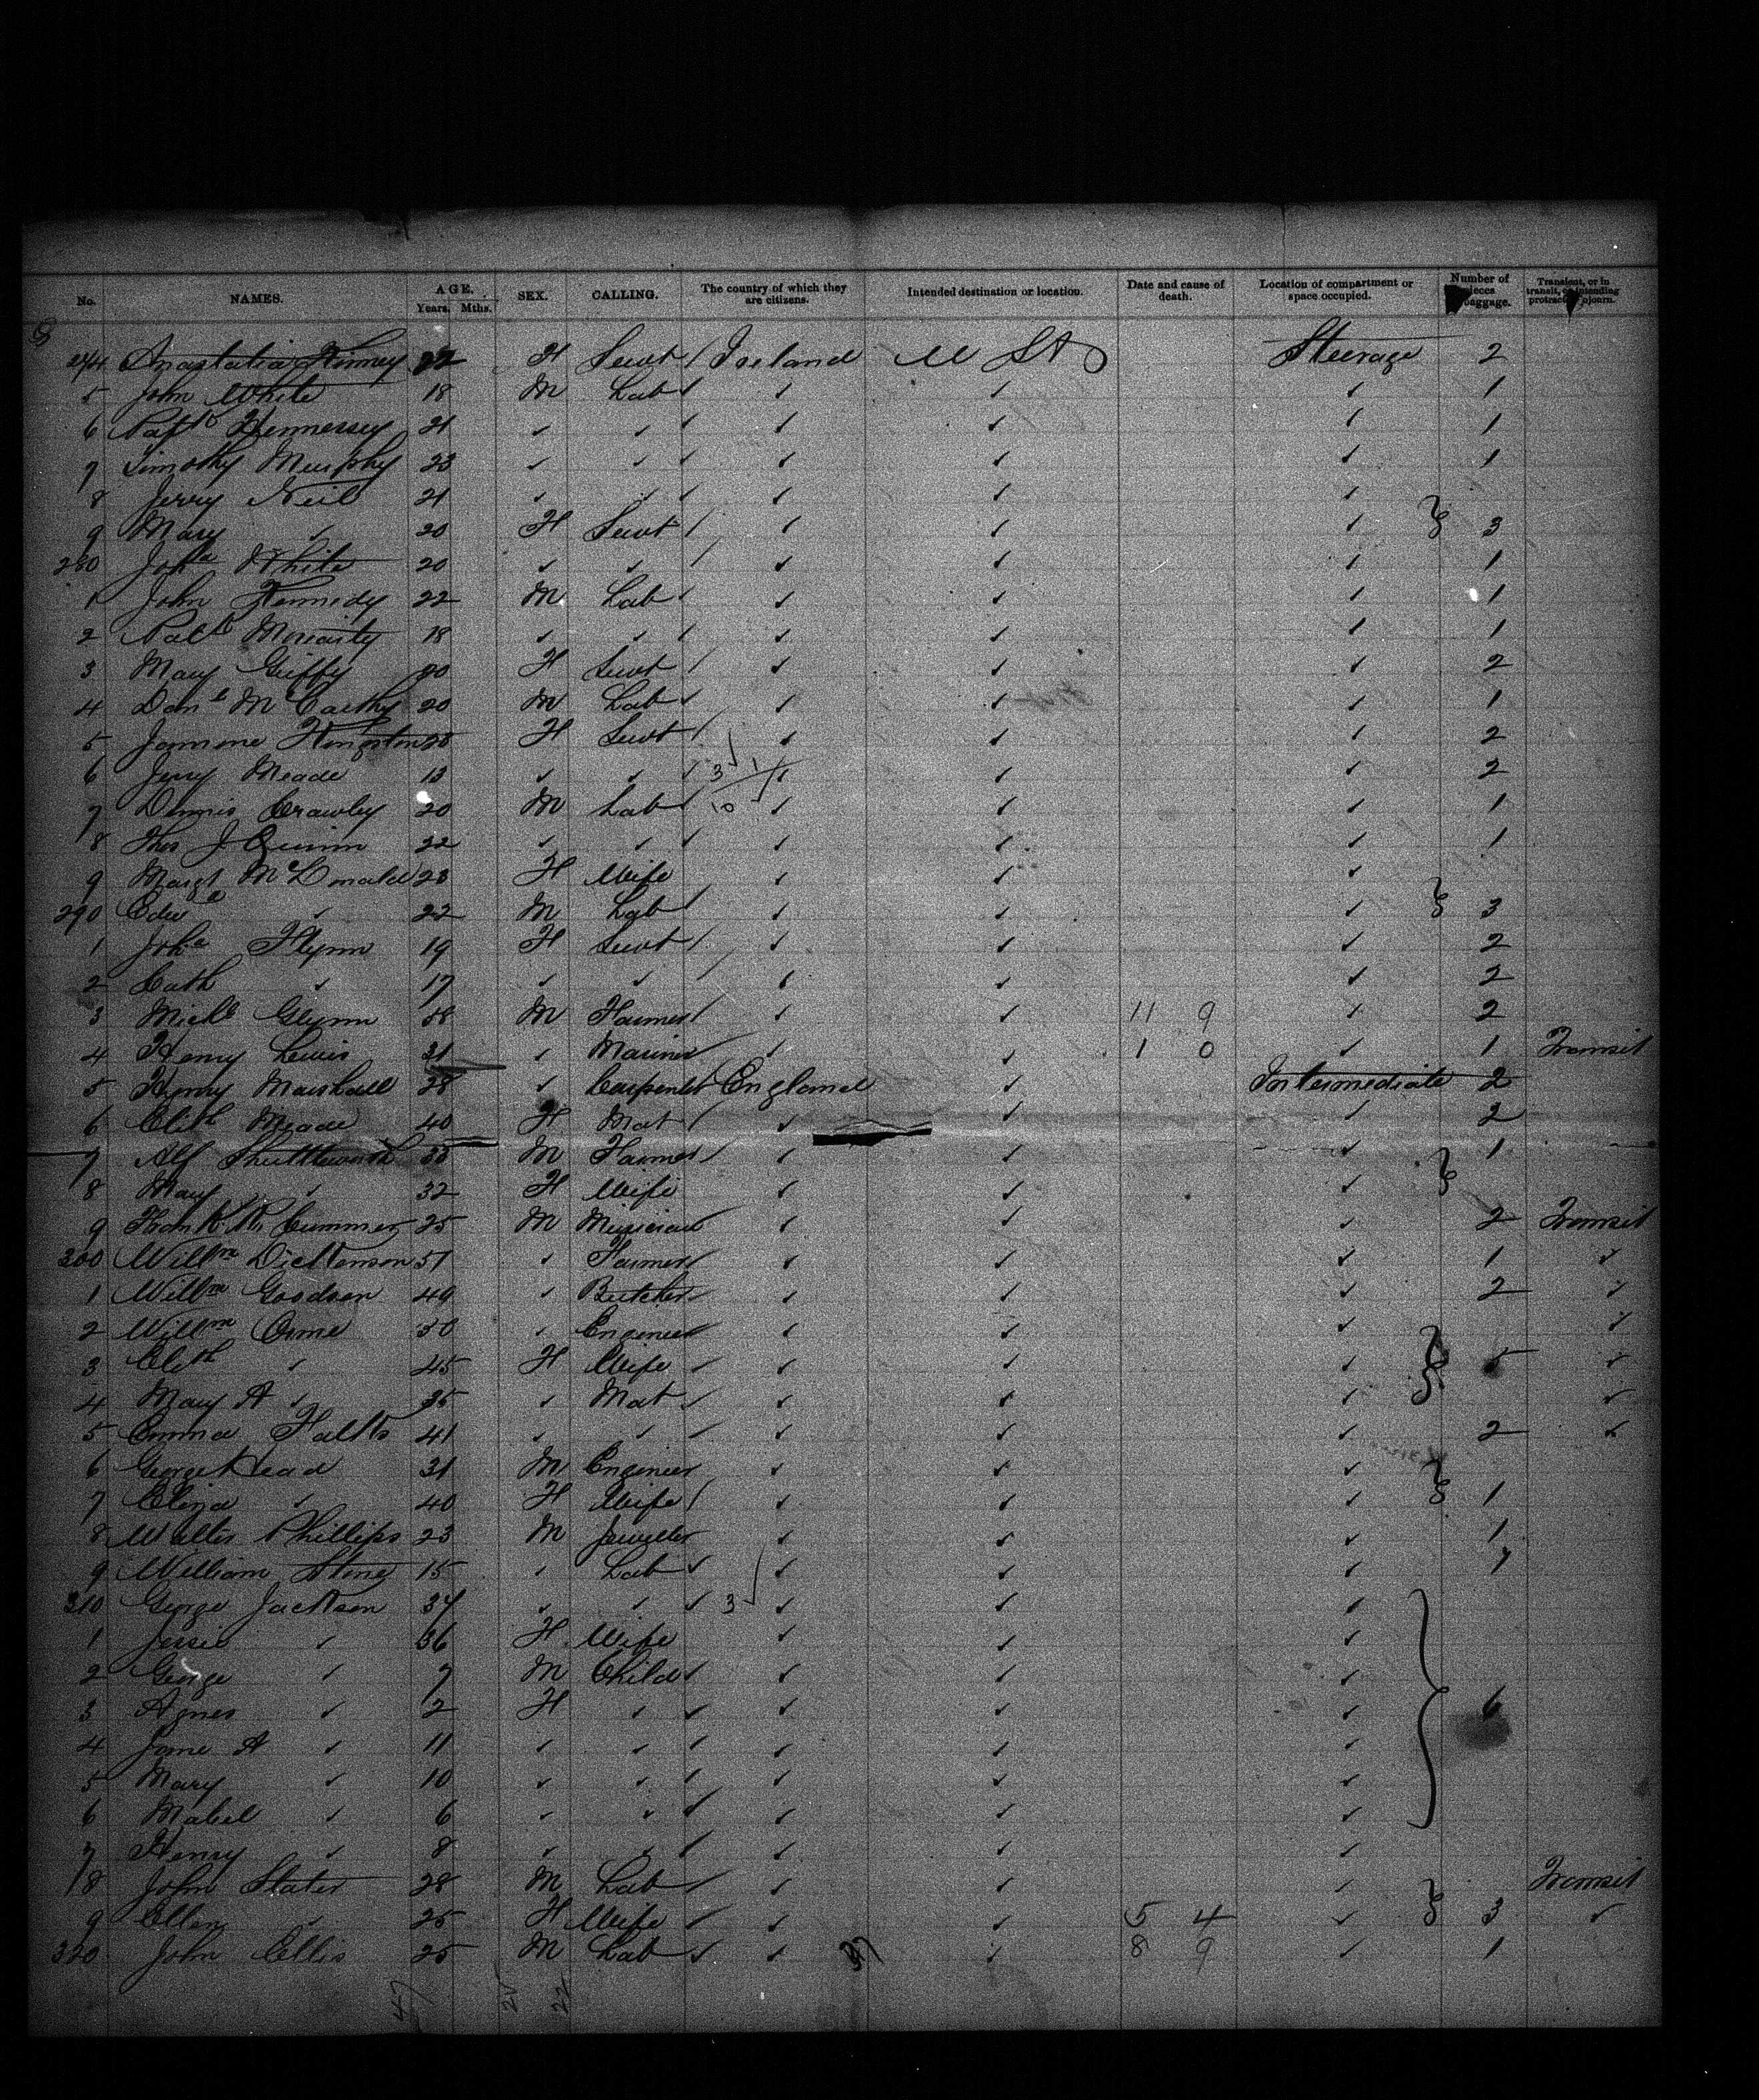 No. NAMES. AGE. Years. Mths. SEX. CALLING. The country of which they are citizens. Intended destination or location. Date and cause of death. Location of compartment or space occupied. Number of pieces baggage. Transient, or in transit, or intending protracted sojourn.
Anastatia Kinney 22 F Servt / Ireland U St Steerage 2
5 John White 18 M Lab ✓ ✓ ✓ ✓ 1
6 Hennessey 21 ✓ ✓ ✓ ✓ ✓ ✓ 1
7 Timothy Murphy 23 ✓ ✓ ✓ ✓ ✓ ✓ 1
8 Jerry Neil 21 ✓ ✓ ✓ ✓ ✓ ✓
9 Mary ✓ 20 F Servt / ✓ ✓ ✓ 3
280 Joha White 20 ✓ ✓ / ✓ ✓ ✓ 1
1 John Kennedy 22 M Lab ✓ ✓ ✓ ✓ 1
2 Patk Moriarty 18 ✓ ✓ ✓ ✓ ✓ ✓ 1
3 Mary Griffy 20 F Servt / ✓ ✓ ✓ 2
4 Danl McCarthy 20 M Lab ✓ ✓ ✓ ✓ 1
5 Kingston F Servt / ✓ ✓ ✓ 2
6 Jerry Meade 13 ✓ ✓ ✓ 3 1 ✓ ✓ ✓ 2
7 Dennis Crawley 20 M Lab ✓ 10 ✓ ✓ ✓ 1
8 Thos J Quinn 22 ✓ ✓ ✓ ✓ ✓ ✓ 1
9 Margt McDonald 23 F Wife ✓ ✓ ✓
290 Edwd ✓ 22 M Lab / ✓ ✓ ✓ 3
1 Joha Flynn 19 F Servt / ✓ ✓ ✓ 2
2 Cath ✓ 17 ✓ ✓ / ✓ ✓ ✓ 2
3 Michl Glynn M Farmer / ✓ ✓ 11 9 ✓ 2
4 Henry Lewis 31 ✓ Mariner ✓ ✓ 1 0 ✓ 1 Transit
5 Henry Marshall 28 ✓ Carpenter England ✓ Intermediate 2
6 Elith Meade 40 F Mat / ✓ ✓ ✓ 2
7 Alf Shuttleworth 33 M Farmer / ✓ ✓ ✓ 1
8 Mary ✓ 32 F Wife ✓ ✓ ✓
9 Frank R. Cummer 25 M Musician ✓ ✓ ✓ 2 Transit
300 Willm Dickenson 51 ✓ Farmer ✓ ✓ ✓ 1 ✓
1 Willm Goodson 49 ✓ Butcher ✓ ✓ ✓ 2 ✓
2 Willm Orme 50 ✓ Engineer ✓ ✓ ✓ ✓
3 Elith ✓ 45 F Wife ✓ ✓ ✓ ✓ 5 ✓
4 Mary A ✓ 35 ✓ Mat ✓ ✓ ✓ ✓ ✓
5 Emma 41 ✓ ✓ ✓ ✓ ✓ ✓ 2 ✓
6 George Head 31 M Engineer ✓ ✓ ✓
7 Eliza ✓ 40 F Wife / ✓ ✓ ✓ 1
8 Walter Phillips 23 M Jeweller ✓ ✓ ✓ 1
9 William Stone 15 ✓ Lab ✓ ✓ ✓ ✓
310 George Jackson 34 ✓ ✓ ✓ 3 ✓ ✓ ✓
1 Jessie ✓ 36 F Wife ✓ ✓ ✓
2 George ✓ 7 M Child ✓ ✓ ✓ ✓
3 Agnes ✓ 2 F ✓ ✓ ✓ ✓ ✓ 6
4 Jane A ✓ 11 ✓ ✓ ✓ ✓ ✓ ✓
5 Mary ✓ 10 ✓ ✓ ✓ ✓ ✓ ✓
6 Mabel ✓ 6 ✓ ✓ ✓ ✓ ✓ ✓
7 Henry ✓ 8 ✓ ✓ ✓ ✓ ✓ ✓
18 John Slater 28 M Lab ✓ ✓ ✓ ✓ Transit
9 Ellen ✓ 25 F Wife ✓ ✓ ✓ 5 4 ✓ 3 ✓
320 John Ellis 25 M Lab ✓ ✓ ✓ 8 9 ✓ 1
47 25 22